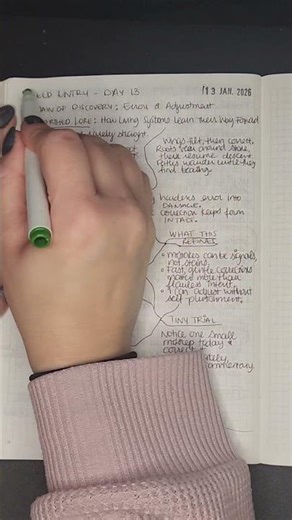 ELD ENTRY - DAY 13
13 JAN. 2026
OF DISCOVERY: Error & Adjustment
LORE: How Living Systems Learn Their Way Forward
Wings tilt, then correct.
Roots veer around stone,
then resume descent.
Paths wander until they
find bearing.
hardens error into
DAMAGE.
correction keeps form
INTACT.
WHAT THIS
REFINES
• mistakes can be signals,
not stains.
• Fast, gentle corrections
matter more than
flawless intent.
• I can adjust without
self-punishment.
TINY TRIAL
Notice one small
misstep today &
correct it